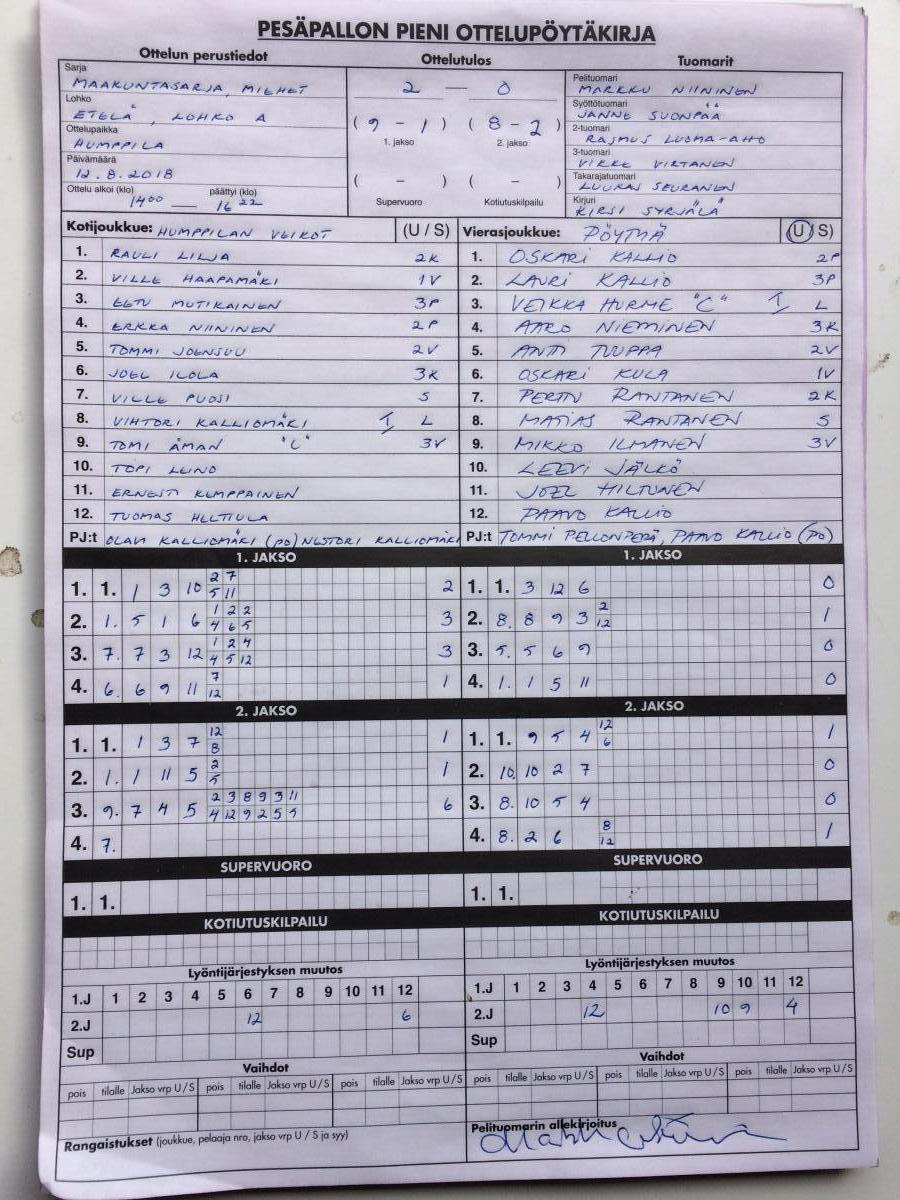 PESÄPALLON PIENI OTTELUPÖYTÄKIRJA
Ottelun perustiedot Ottelutulos Tuomarit
Sarja
MAAKUNTASARJA, MIEHET
Lohko
ETELÄ, LOHKO A
Ottelupaikka
HUMPPILA
Päivämäärä
12.8.2018
Ottelu alkoi (klo) päättyi (klo)
14 00 — 16 22
2 — 0
(9 - 1) (8 - 2)
1. jakso 2. jakso
( - ) ( - )
Supervuoro Kotiutuskilpailu
Pelituomari
MARKKU NIININEN
Syöttötuomari
JANNE SUONPÄÄ
2-tuomari
RASMUS LUOMA-AHO
3-tuomari
VIRTANEN
Takarajatuomari
LUUKAS SEURANEN
Kirjuri
KIRSI SYRJÄLÄ
Kotijoukkue: HUMPPILAN VEIKOT (U / S)
1. RAULI LILJA 2K
2. VILLE HAAPAMÄKI 1V
3. EETU MUTIKAINEN 3P
4. ERKKA NIININEN 2P
5. TOMMI JOENSUU 2V
6. JOEL ILOLA 3K
7. VILLE PUOSI S
8. VIHTORI KALLIOMÄKI T L
9. TOMI ÅMAN "C" 3V
10. TOPI LEINO
11. ERNESTI KUMPPAINEN
12. TUOMAS
PJ:t OLAVI KALLIOMÄKI (PO) NESTORI KALLIOMÄKI
Vierasjoukkue: PÖYTYÄ (U / S)
1. OSKARI KALLIO 2P
2. LAURI KALLIO 3P
3. VEIKKA HURME "C" T L
4. AARO NIEMINEN 3K
5. ANTTI TUUPPA 2V
6. OSKARI KULA 1V
7. PERTTU RANTANEN 2K
8. MATIAS RANTANEN S
9. MIKKO ILMANEN 3V
10. LEEVI JÄLKÖ
11. JOEL HILTUNEN
12. PAAVO KALLIO
PJ:t TOMMI PELLONPERÄ, PAAVO KALLIO (PO)
1. JAKSO
1. 1. 1 3 10 2 7 2
5 11
2. 1. 5 1 6 1 2 2 3
4 6 5
3. 7. 7 3 12 1 2 4 3
4 5 12
4. 6. 6 9 11 7 1
12
1. JAKSO
1. 1. 3 12 6 0
2. 8. 8 9 3 2 1
12
3. 5. 5 6 9 0
4. 1. 1 5 11 0
2. JAKSO
1. 1. 1 3 7 12 1
8
2. 1. 1 11 5 2 1
5
3. 9. 7 4 5 2 3 8 9 3 11 6
4 12 9 2 5 9
4. 7.
2. JAKSO
1. 1. 9 5 4 12 1
6
2. 10. 10 2 7 0
3. 8. 10 5 4 0
4. 8. 2 6 8 1
12
SUPERVUORO
1. 1.
SUPERVUORO
1. 1.
KOTIUTUSKILPAILU
KOTIUTUSKILPAILU
Lyöntijärjestyksen muutos
1.J 1 2 3 4 5 6 7 8 9 10 11 12
2.J 12 6
Sup
Lyöntijärjestyksen muutos
1.J 1 2 3 4 5 6 7 8 9 10 11 12
2.J 12 10 9 4
Sup
Vaihdot
pois tilalle Jakso vrp U/S pois tilalle Jakso vrp U/S pois tilalle Jakso vrp U/S
Vaihdot
pois tilalle Jakso vrp U/S pois tilalle Jakso vrp U/S pois tilalle Jakso vrp U/S
Rangaistukset (joukkue, pelaaja nro, jakso vrp U / S ja syy)
Pelituomarin allekirjoitus